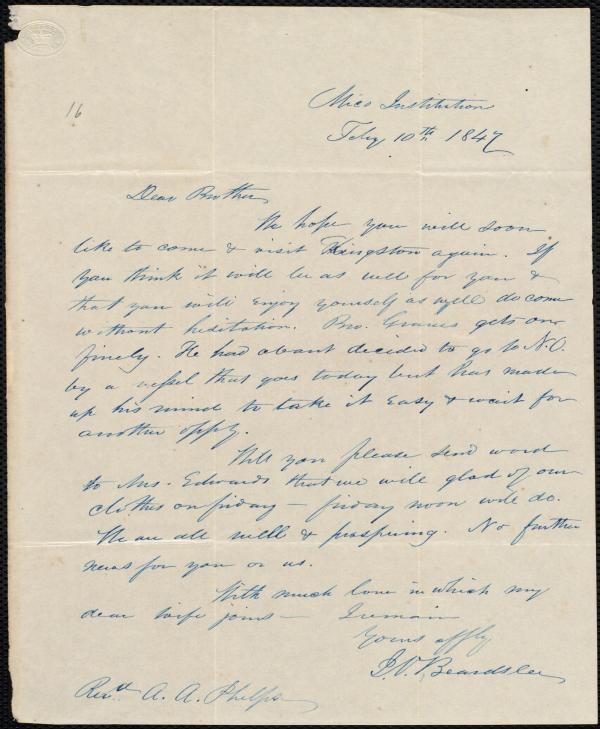 16
Mico Institution
Feby 10th 1847
Dear Brother
We hope you will soon
like to come & visit Kingston again. If
you think it will be as well for you &
that you will enjoy yourself as well do come
without hesitation. Bro. Graves gets on
finely. He had about decided to go to N.O.
by a vessel that goes today but has made
up his mind to take it easy & wait for
another oppty.
Will you please send word
to Mrs. Edwards that we will glad of our
clothes on friday — friday noon will do.
We are all well & prospering. No further
news for you or us.
With much love in which my
dear wife joins — I remain
Yours affly
J.O. Beardslee
Revd A. A. Phelps